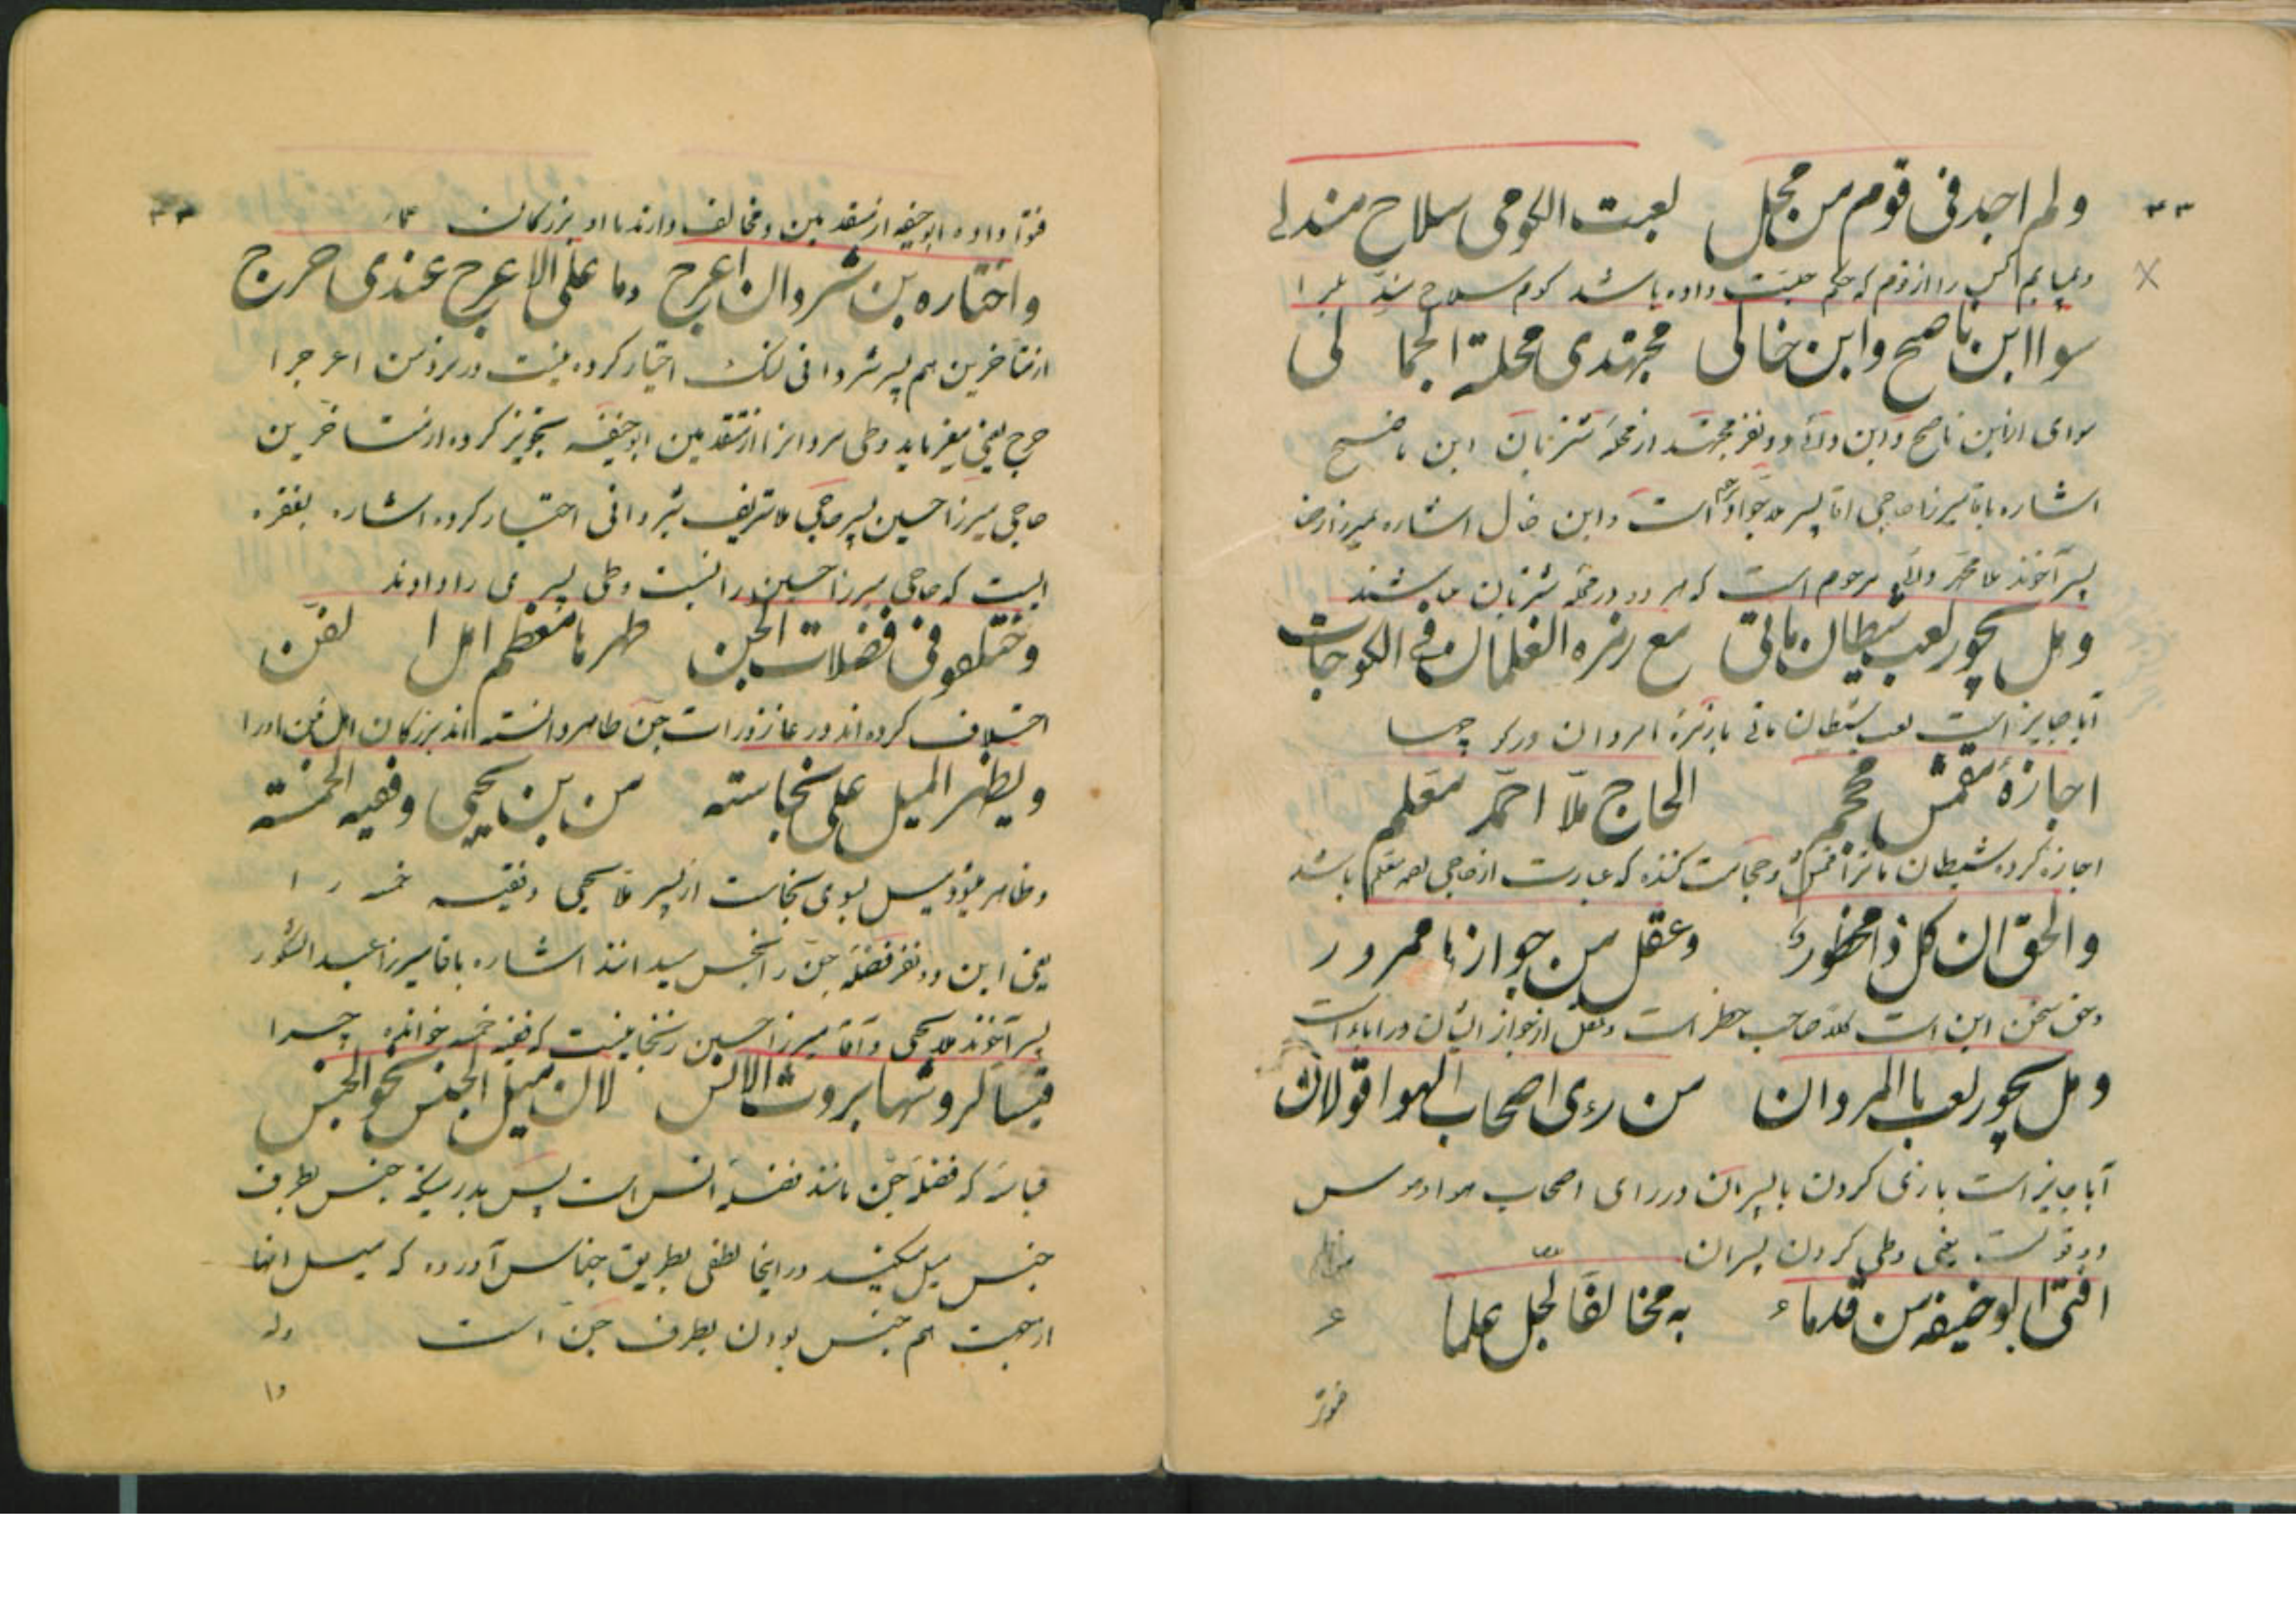 ولم اجد فی قوم من مجمل لعبت الکومی سلاح مندلے
ونیابم کس را از قوم که حکم داده باشد کوم سلاح
سوا ابن ناصح وابن خالی مجتهدی محلة الجما لی
سوای ابن ناصح وابن دائی دو نفر مجتهد از محله شتربان ابن ناصح
اشاره باقا میرزا حاجی اقا پسر ملا جواد است وابن خال اشاره بمیرزا رضا
پسر آخوند ملا محمد دائی مرحوم است که هر دو در محله شتربان میباشند
وهل یجوز لعب شیطان بالتی مع زمره الغلمان فی الکوجات
آیا جایز است لعب شیطان بازمرهٔ امردان در کوچها
اجازهٔ محجم الحاج ملّا احمّد معّلم
اجازه کرده شیطان وحجامت کننده که عبارت از حاجی معلم باشد
والحق ان کل ذا محظور وعقل من جواز نا ممرور
وحق سخن این است کلا صاحب حظر است وعقل از جواز ایشان در اباء است
وهل یجوز لعب با المردان من رءی اصحاب الهوا قولان
آیا جایز است بازی کردن با پسران در رای اصحاب هوا وهوس
دو قولست یعنی وطی کردن پسران
افتیٰ ابو حنیفه من قدماء به مخالفا لجل علما
فتوا
فتوا داده ابو حنیفه از متقدمین ومخالف دارند با او بزرکان علماء
واختاره بن شروان اعرج وما علی الاعرج عندی حرج
از متاخرین هم پسر شروانی لنک اختیار کرده نیست در نزد من اعرج را
حرج یعنی میفرماید وطی مردانرا از متقدمین ابو حنیفه تجویز کرده از متاخرین
حاجی میرزا حسین پسر حاجی ملا شریف شروانی اختیار کرده اشاره بفقره
ایست که حاجی میرزا حسین را نسبت وطی پسر می دادند
وختلفو فی فضلات الجن طهرها معظم اهل الفن
اختلاف کرده اند در عاذورات جن طاهر دانسته اند بزرکان اهل فن اورا
ویظهر المیل علی نجاسته من بن یحیی وفقیه الخمسه
وظاهر میشود میل بسوی نجاست از پسر ملا یحیی وفقیه خمسه را
یعنی این دو نفر فضلهٔ جن را نجس میدانند اشاره باقا میرزا عبدالشکور
پسر آخوند ملا یحیی وآقا میرزا حسین زنجانیست که فقیه خمسه خوانده چرا
قیسا لروشها بروث الانس لان میل الجنس نحو الجنس
قیاسا که فضلهٔ جن مانند فضلهٔ انس است پس بدرستیکه جنس بطرف
جنس میل میکند در اینجا لطفی بطریق جناس آورده که میل اینها
از جهت هم جنس بودن بطرف جن است وله
وا